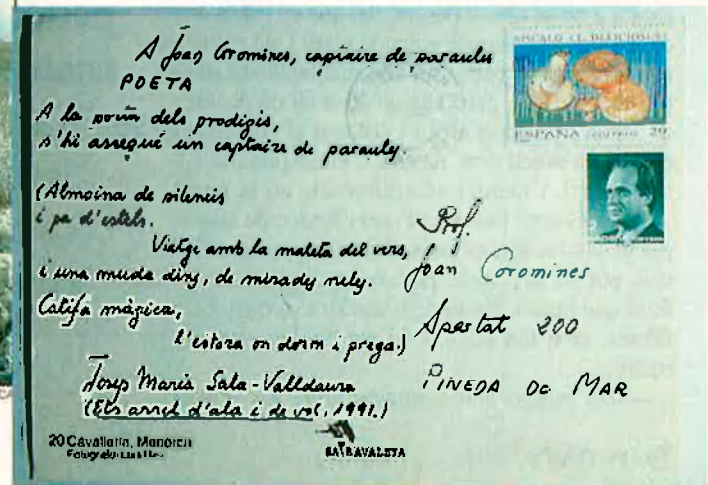 A Joan Coromines, captaire de paraules
POETA
A la dels prodigis,
s'hi assegué un captaire de paraules.
(Almoina de silencis
i pa d'estels.
Viatge amb la maleta del vers,
i una muda dins, de mirades
Catifa màgica,
l'estora on dorm i prega.)
Josep Maria Sala-Valldaura
(Ets arrel d'ala i de vol, 1991.)
20 Cavalleria, Menorca
SA TRAVALETA
NISCALO (L. DELICIOSUS)
ESPAÑA correos 29
Prof.
Joan Coromines
Apartat 200
PINEDA DE MAR